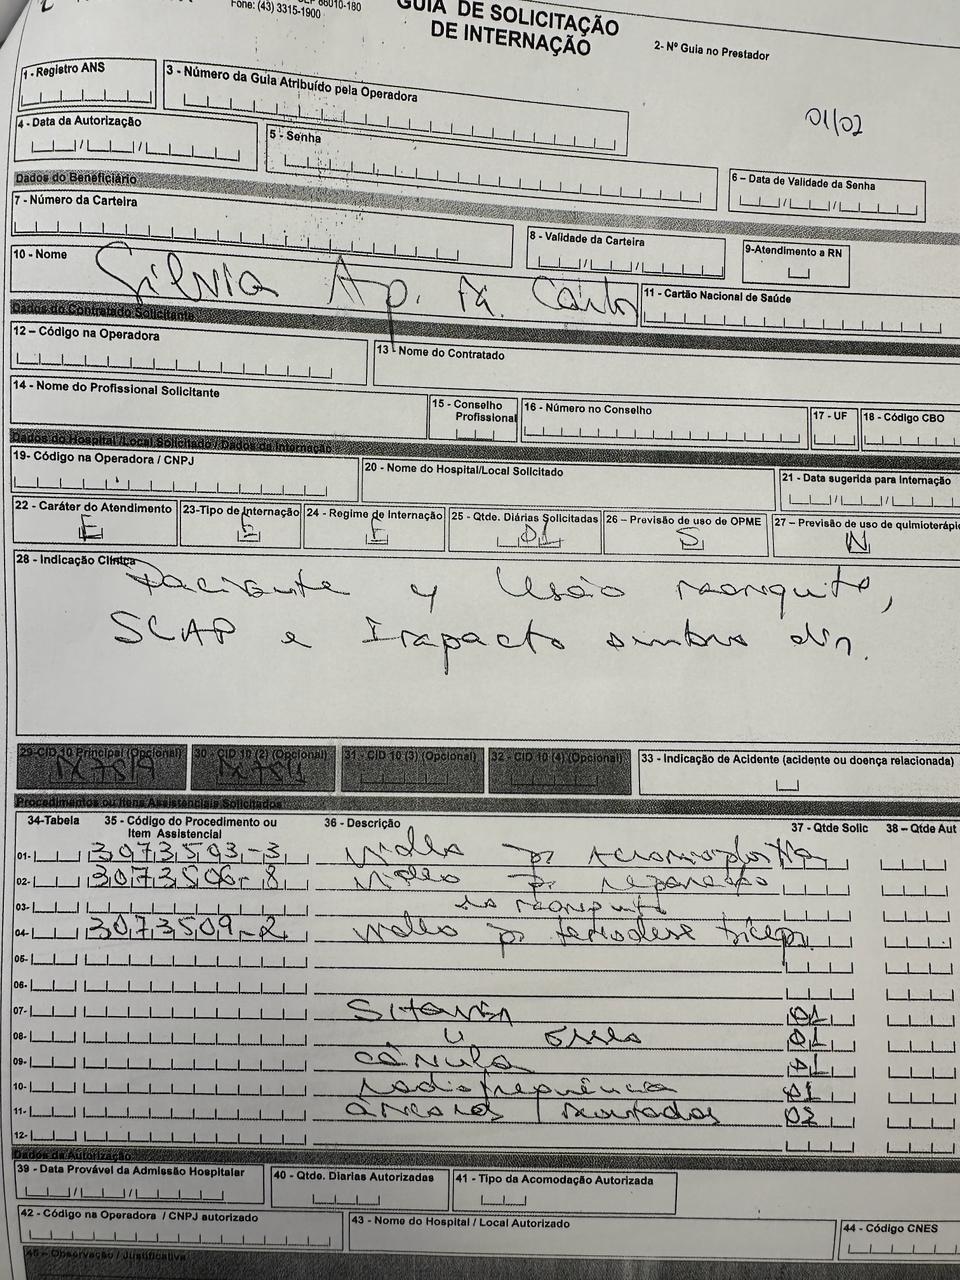 Fone: (43) 3315-1900
GUIA DE SOLICITAÇÃO
DE INTERNAÇÃO
2- Nº Guia no Prestador
01/02
1 - Registro ANS
3 - Número da Guia Atribuído pela Operadora
4 - Data da Autorização
5 - Senha
6 – Data de Validade da Senha
Dados do Beneficiário
7 - Número da Carteira
8 - Validade da Carteira
9-Atendimento a RN
10 - Nome
Silvia Ap.
11 - Cartão Nacional de Saúde
Dados do Contratado Solicitante
12 – Código na Operadora
13 - Nome do Contratado
14 - Nome do Profissional Solicitante
15 - Conselho Profissional
16 - Número no Conselho
17 - UF
18 - Código CBO
Dados do Hospital /Local Solicitado / Dados da Internação
19- Código na Operadora / CNPJ
20 - Nome do Hospital/Local Solicitado
21 - Data sugerida para Internação
22 - Caráter do Atendimento
E
23-Tipo de Internação
E
24 - Regime de Internação
25 - Qtde. Diárias Solicitadas
01
26 – Previsão de uso de OPME
S
27 – Previsão de uso de quimioterápic
N
28 - Indicação Clínica
Paciente c/ lesão manguito,
SLAP e Impacto ombro dir.
29-CID 10 Principal (Opcional)
30 - CID 10 (2) (Opcional)
31 - CID 10 (3) (Opcional)
32 - CID 10 (4) (Opcional)
33 - Indicação de Acidente (acidente ou doença relacionada)
Procedimentos ou Itens Assistenciais Solicitados
34-Tabela
35 - Código do Procedimento ou Item Assistencial
36 - Descrição
37 - Qtde Solic
38 – Qtde Aut
01- 3073503-3 Video p/ acromioplastia
02- 3073506-8 Video p/ reparação
03- do manguito
04- 3073509-2 Video p/ tenodese bíceps
05-
06-
07- 01
08- 01
09- Cânula 01
10- Radiofrequência 01
11- âncoras montadas 02
12-
Dados da Autorização
39 - Data Provável da Admissão Hospitalar
40 - Qtde. Diarias Autorizadas
41 - Tipo da Acomodação Autorizada
42 - Código na Operadora / CNPJ autorizado
43 - Nome do Hospital / Local Autorizado
44 - Código CNES
45 – Observação / Justificativa